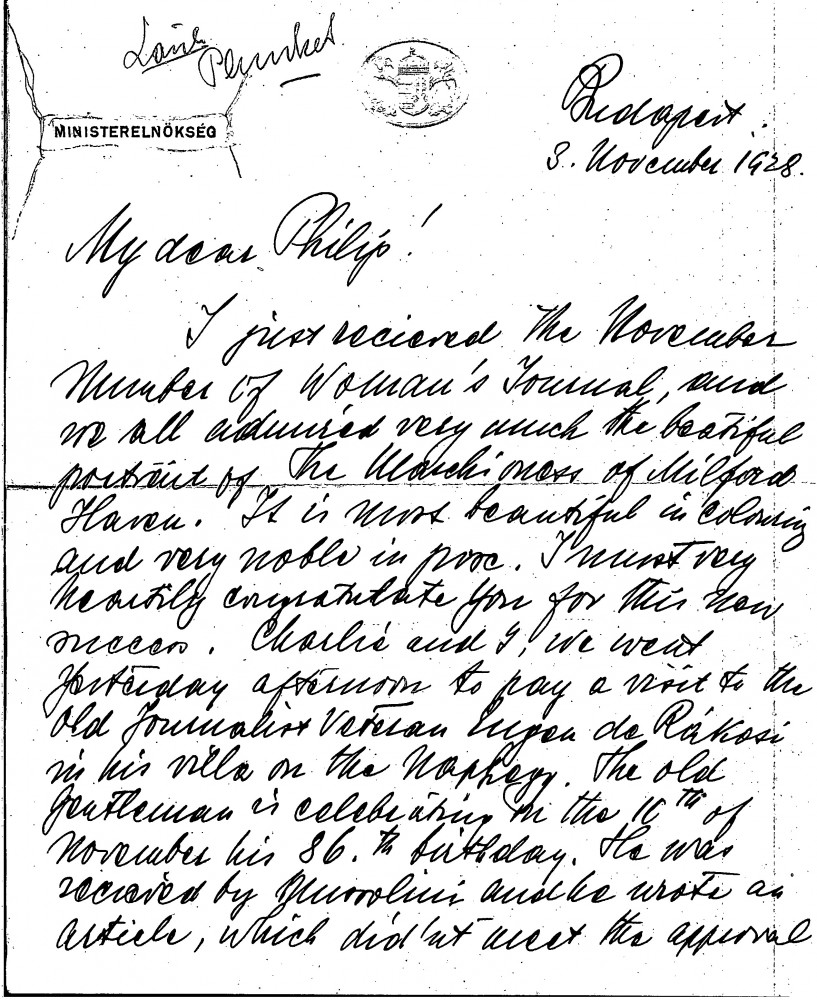 Plunket
MINISTERELNÖKSÉG
Budapest.
3. November 1928.
My dear Philip!
I just recieved the November
Number of Woman's Journal, and
we all admired very much the beatiful
portrait of the Marchioness of Milford
Haven. It is most beautiful in colouring
and very noble in pose. I must very
heartily congratulate you for this new
success. Charlie and I, we went
yesterday afternoon to pay a visit to the
old Journalist Veteran Eugen de Rákosi
in his villa on the Naphegy. The old
gentleman is celebrating on the of
November his 86.th birthday. He was
recieved by Mussolini and he wrote an
article, which did'nt meet the approval